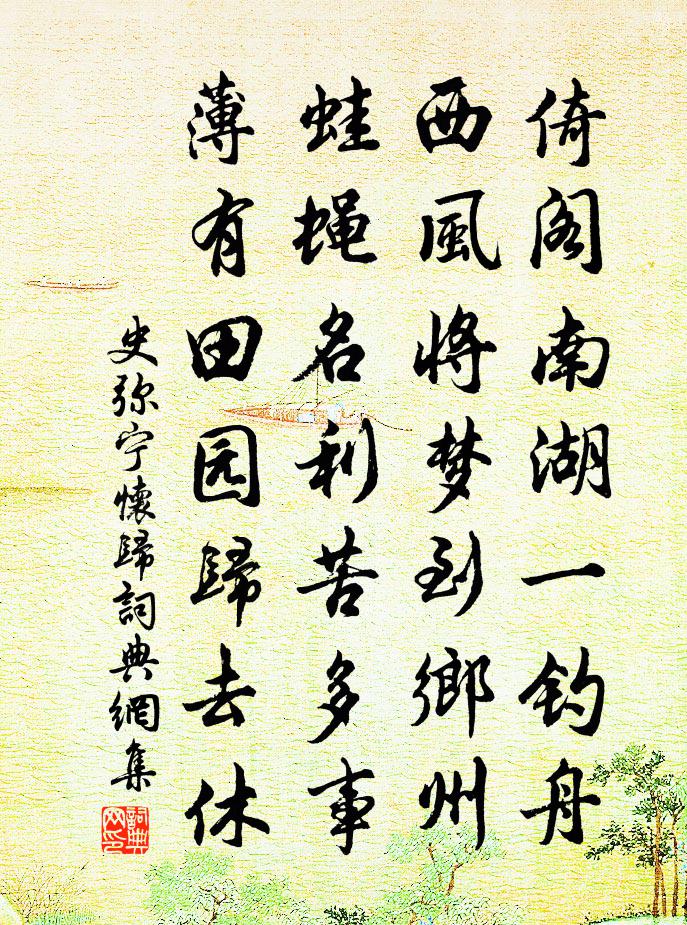 倚阁南湖一钓舟
西風将梦到鄉州
蛙蝇名利苦多事
薄有田园歸去休
史弥宁懷歸詞典網集
詞典网印